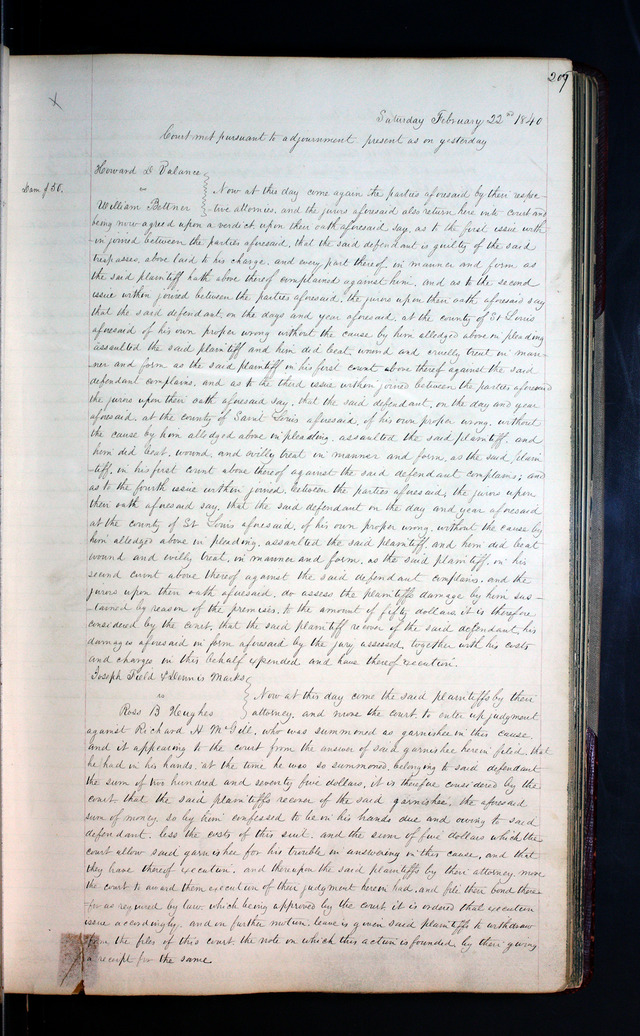 209
Saturday February 22nd 1840
Court met pursuant to adjournment present as on yesterday
Howard D Valance
Dam $50.
vs
Now at this day come again the parties aforesaid by their respec-
William Bettner
tive attornies, and the jurors aforesaid also return here into court and
being now agreed upon a verdict upon their oath aforesaid say, as to the first issue with
in joined between the parties aforesaid, that the said defendant is guilty of the said
trespasses, above laid to his charge, and every part thereof, in manner and form as
the said plaintiff hath above thereof complained against him, and as to the second
issue within joined between the parties aforesaid, the jurors upon their oath aforesaid say
that the said defendant, on the days and year aforesaid, at the county of St Louis
aforesaid of his own proper wrong without the cause by him alledged above in pleading
assaulted the said plaintiff and him did beat, wound and cruelly treat in man-
ner and form as the said plaintiff in his first count above thereof against the said
defendant complains, and as to the third issue within joined between the parties aforesaid
the jurors upon their oath aforesaid say, that the said defendant, on the day and year
aforesaid, at the county of Saint Louis aforesaid, of his own proper wrong, without
the cause by him alledged above in pleading, assaulted the said plaintiff, and
him did beat, wound, and evilly treat in manner and form, as the said plain-
tiff, in his first count above thereof against the said defendant complains; and
as to the fourth issue within joined between the parties aforesaid, the jurors upon
their oath aforesaid say, that the said defendant on the day and year aforesaid
at the county of St Louis aforesaid, of his own proper wrong, without the cause by
him alledged above in pleading, assaulted the said plaintiff, and him did beat
wound and evilly treat, in manner and form, as the said plaintiff, in his
second count above thereof against the said defendant complains, and the
jurors upon their oath aforesaid, do assess the plaintiffs damage by him sus-
tained by reason of the premises, to the amount of fifty dollars, it is therefore
considered by the court, that the said plaintiff recover of the said defendant, his
damages aforesaid in form aforesaid by the jury assessed, together with his costs
and charges in this behalf expended and have thereof execution.
Joseph Field & Dennis Marks
vs
Now at this day come the said plaintiffs by their
Ross B Hughes
attorney, and move the court to enter up judgment
against Richard H McGill, who was summoned as garnishee in this cause
and it appearing to the court from the answer of said garnishee herein filed, that
he had in his hands, at the time he was so summoned, belonging to said defendant
the sum of two hundred and seventy five dollars, it is therefore considered by the
court that the said plaintiffs recover of the said garnishee, the aforesaid
sum of money, so by him confessed to be in his hands due and owing to said
defendant, less the costs of this suit, and the sum of five dollars which the
court allow said garnishee for his trouble in answering in this cause, and that
they have thereof execution, and thereupon the said plaintiffs by their attorney move
the court to award them execution of their judgment herein had, and file their bond there
for as required by law, which being approved by the court it is ordered that execution
issue accordingly, and on further motion leave is given said plaintiffs to withdraw
from the files of this court, the note on which this action is founded by their giving
a receipt for the same